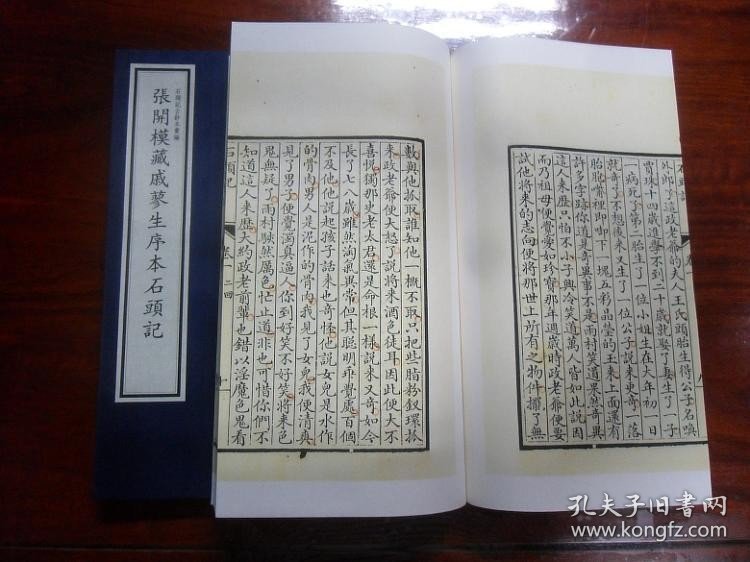 石頭記古鈔本彙編
張開模藏戚蓼生序本石頭記
外郎了這政老爺的夫人王氏頭胎生得公子名喚
賈珠十四歲進學不到二十歲就娶了妻生了一子
病死了第二胎生了一位小姐生在大年初一日
就奇了不想後來又生了一位公子說來更奇一落
胎胞嘴裡卽啣下一塊五彩晶瑩的玉來上面還有
許多字跡你道是奇異事不是雨村笑道果然奇異
這人來歷只怕不小子興冷笑道萬人皆如此說因
而乃祖母便覺愛如珍寶那年週歲時政老爺便要
試他將來的志向便將那世上所有之物件擺了無
數與他抓取誰知他一概不取只把些脂粉釵環抓
來政老爺便大怒了說將來酒色徒耳因此便大不
喜悅獨那史老太君還是命根一樣說來又奇如今
長了七八歲雖然淘氣異常但其聰明乖覺處百個
不及他他說起孩子話來也奇怪他說女兒是水作
的骨肉男人是泥作的骨肉我見了女兒我便清爽
見了男子便覺濁臭逼人你到好笑不好笑將來色
鬼無疑了雨村駭然厲色忙止道非也可惜你們不
知道這人來歷大約政老前輩也錯以淫魔色鬼看
石頭記 卷一 二四
孔夫子旧书网
www.kongfz.com